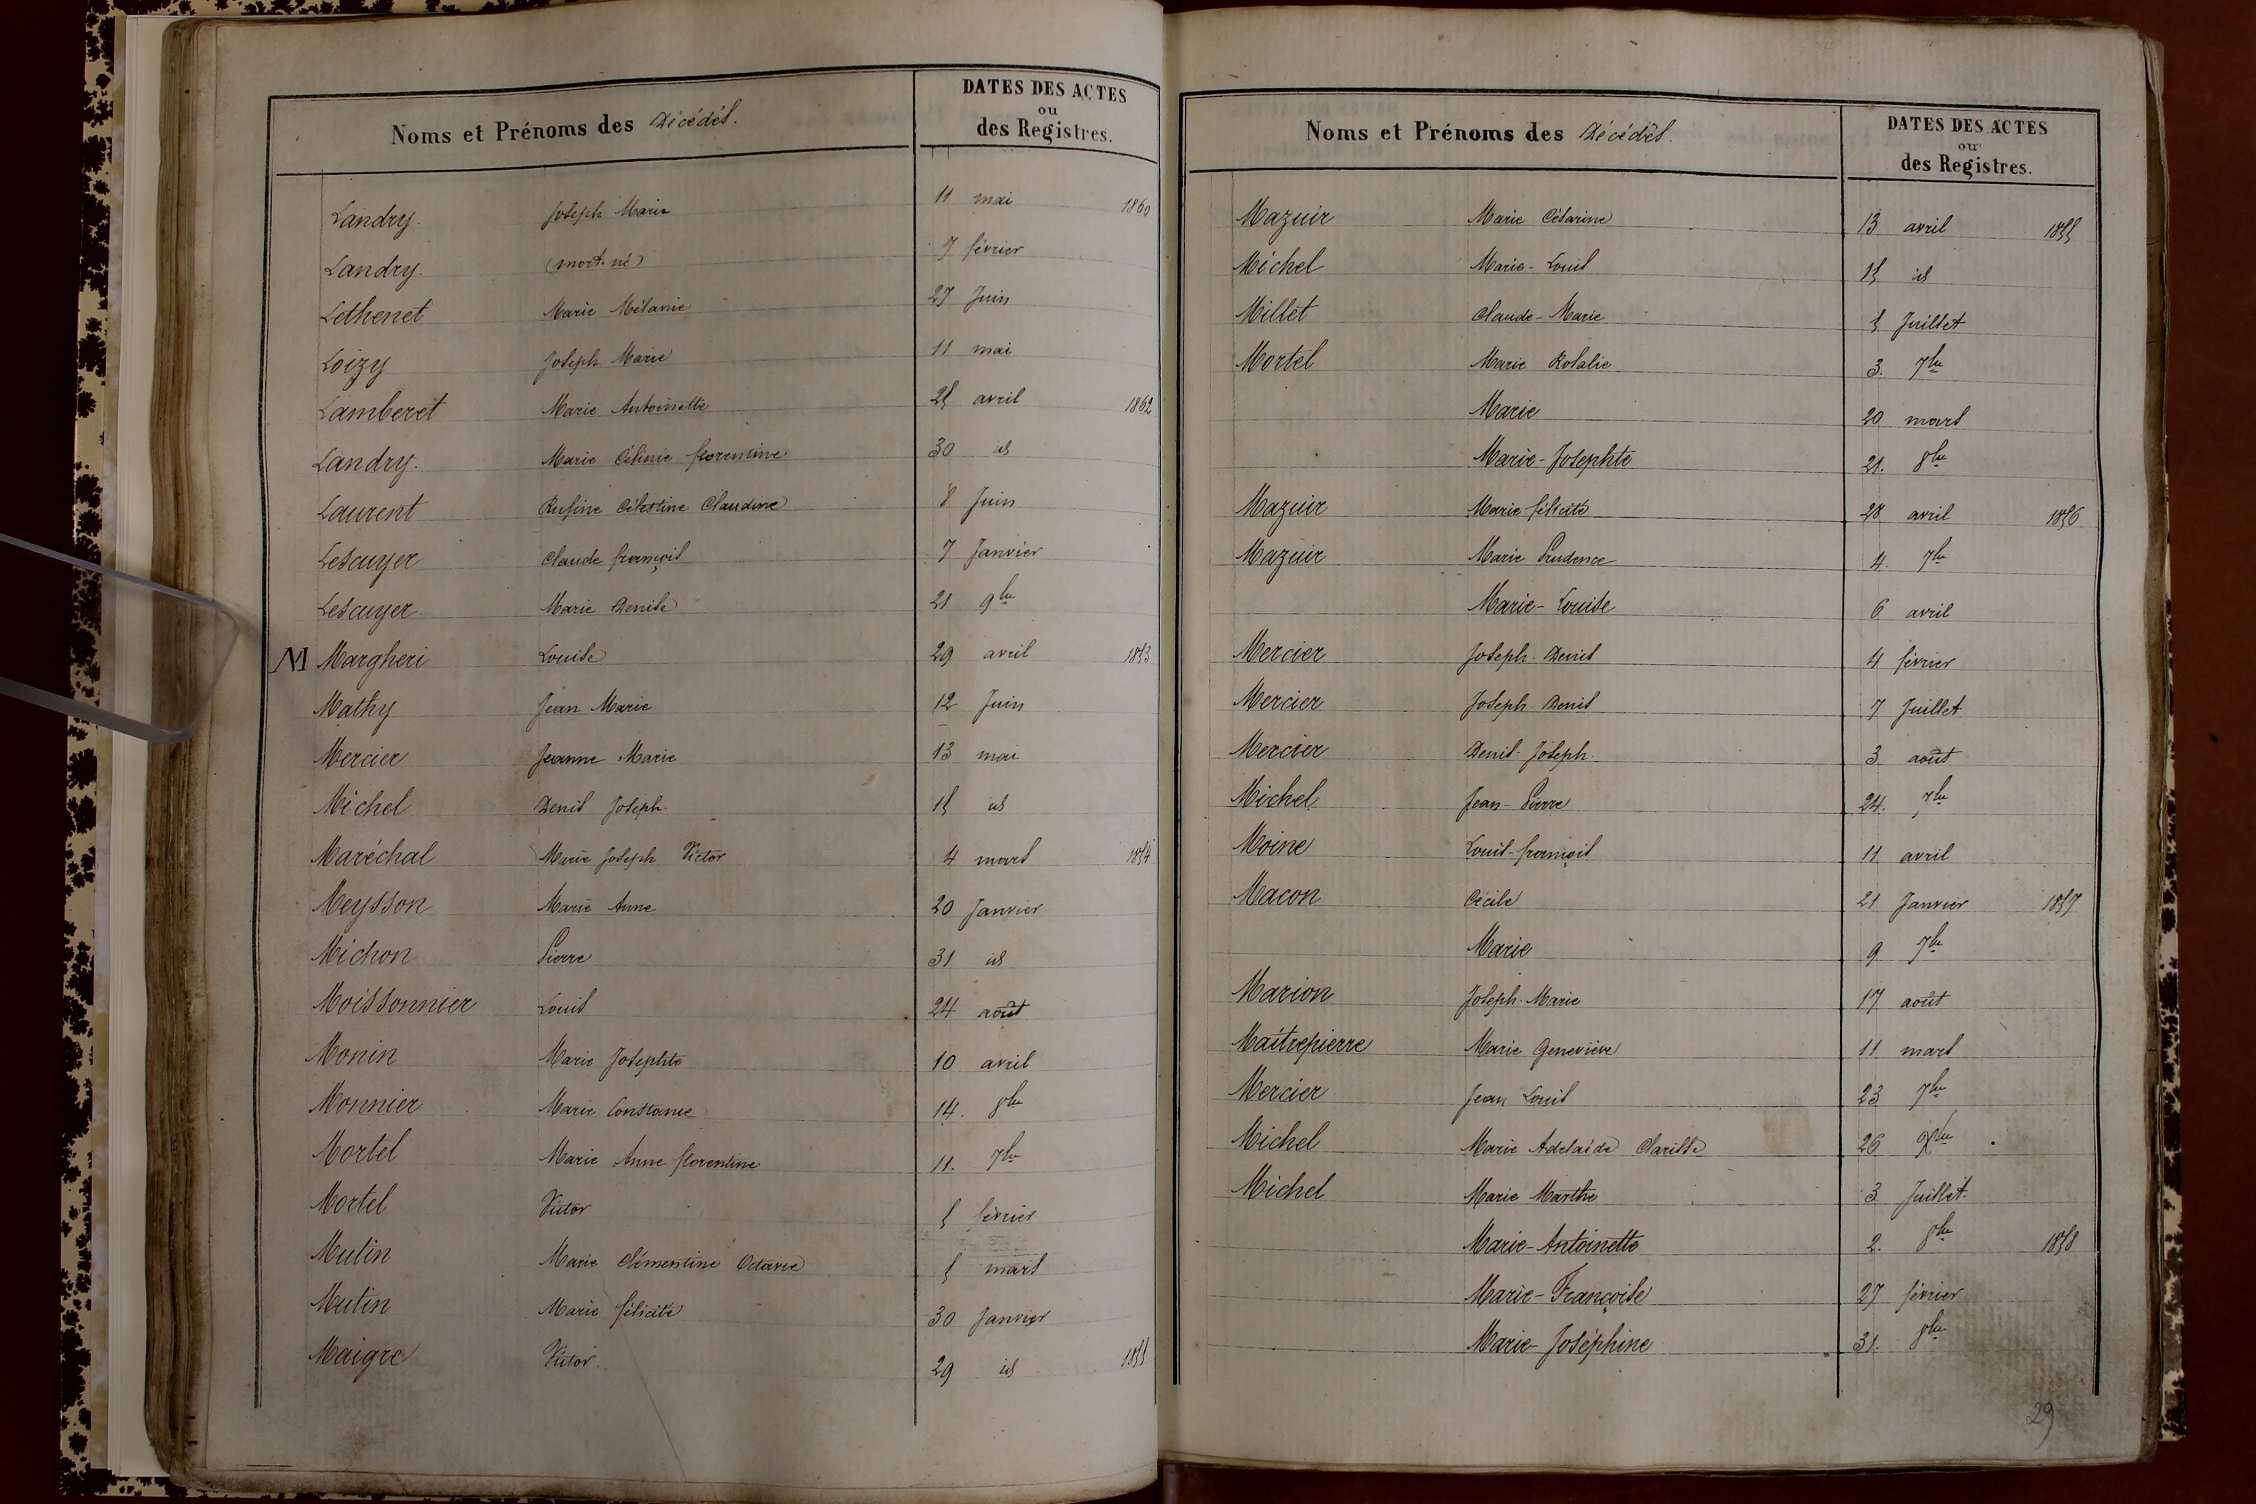 Noms et Prénoms des Décédés.
DATES DES ACTES
ou
des Registres.
Landry Joseph Marie 11 mai 1860
Landry (mort-né) 7 février
Lethenet Marie Mélanie 27 Juin
Loizy Joseph Marie 11 mai
Lamberet Marie Antoinette 25 avril 1862
Landry Marie florentine 30 id
Laurent Rufine Célestine Claudine 8 Juin
Lescuyer Claude françois 7 Janvier
Lescuyer Marie Denise 21 9bre
M Margheri Louise 29 avril 1853
Mathy Jean Marie 12 Juin
Mercier Jeanne Marie 13 mai
Michel Denis Joseph 15 id
Maréchal Marie Joseph Victor 4 mars 1854
Meysson Marie Anne 20 Janvier
Michon Pierre 31 id
Moissonnier Louis 24 août
Monin Marie Josephte 10 avril
Monnier Marie Constance 14. 8bre
Mortel Marie Anne florentine 11. 7bre
Mortel Victor 5 février
Mutin Marie Clémentine Octavie 5 mars
Mutin Marie félicité 30 Janvier
Maigre Victor 29 id 1855
Noms et Prénoms des Décédés.
DATES DES ACTES
ou
des Registres.
Mazuir Marie Césarine 13 avril 1855
Michel Marie-Louis 15 id
Millet Claude-Marie 5 Juillet
Mortel Marie Rosalie 3. 7bre
Marie 20 mars
Marie-Josephte 21. 8bre
Mazuir Marie félicité 28 avril 1856
Mazuir Marie Prudence 4 7bre
Marie-Louise 6 avril
Mercier Joseph-Denis 4 février
Mercier Joseph Denis 7 Juillet
Mercier Denis-Joseph 3 août
Michel Jean-Pierre 24. 7bre
Moine Louis-françois 11 avril
Macon Cécile 21 Janvier 1857
Marie 9 7bre
Marion Joseph-Marie 17 août
Maîtrepierre Marie Geneviève 11 mars
Mercier Jean Louis 23 7bre
Michel Marie Adelaïde Clarisse 26 Xbre
Michel Marie Marthe 3 Juillet
Marie-Antoinette 2. 8bre 1858
Marie-Françoise 27 février
Marie-Joséphine 31. 8bre
29